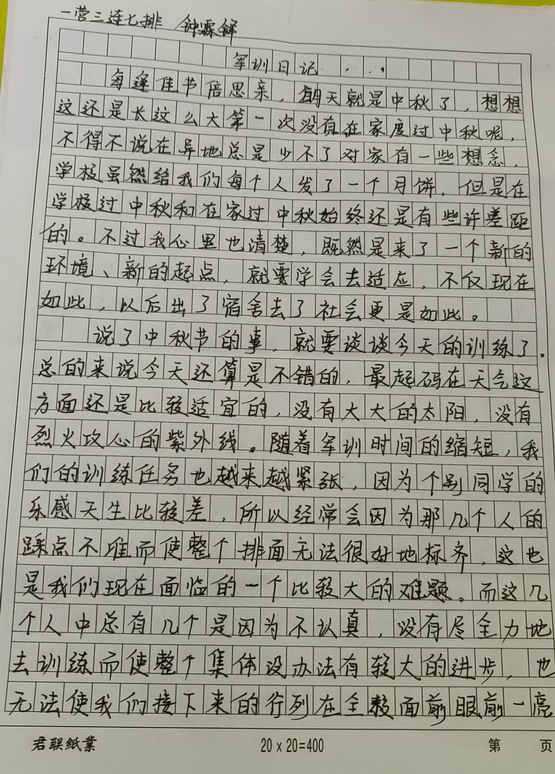 一营三连七排 钟霖锋
军训日记
每逢佳节倍思亲，明天就是中秋了，想想
这还是长这么大第一次没有在家度过中秋呢，
不得不说在异地总是少不了对家有一些想念，
学校虽然给我们每个人发了一个月饼，但是在
学校过中秋和在家过中秋始终还是有些许差距
的。不过我心里也清楚，既然是来了一个新的
环境、新的起点，就要学会去适应，不仅现在
如此，以后出了宿舍去了社会更是如此。
说了中秋节的事，就要谈谈今天的训练了。
总的来说今天还算是不错的，最起码在天气这
方面还是比较适宜的，没有大大的太阳，没有
烈火攻心的紫外线。随着军训时间的缩短，我
们的训练任务也越来越紧张，因为个别同学的
乐感天生比较差，所以经常会因为那几个人的
踩点不准而使整个排面无法很好地标齐，这也
是我们现在面临的一个比较大的难题。而这几
个人中总有几个是因为不认真，没有尽全力地
去训练而使整个集体没办法有较大的进步，也
无法使我们接下来的行列在全教面前眼前一亮
君联紙業 20×20=400 第 页